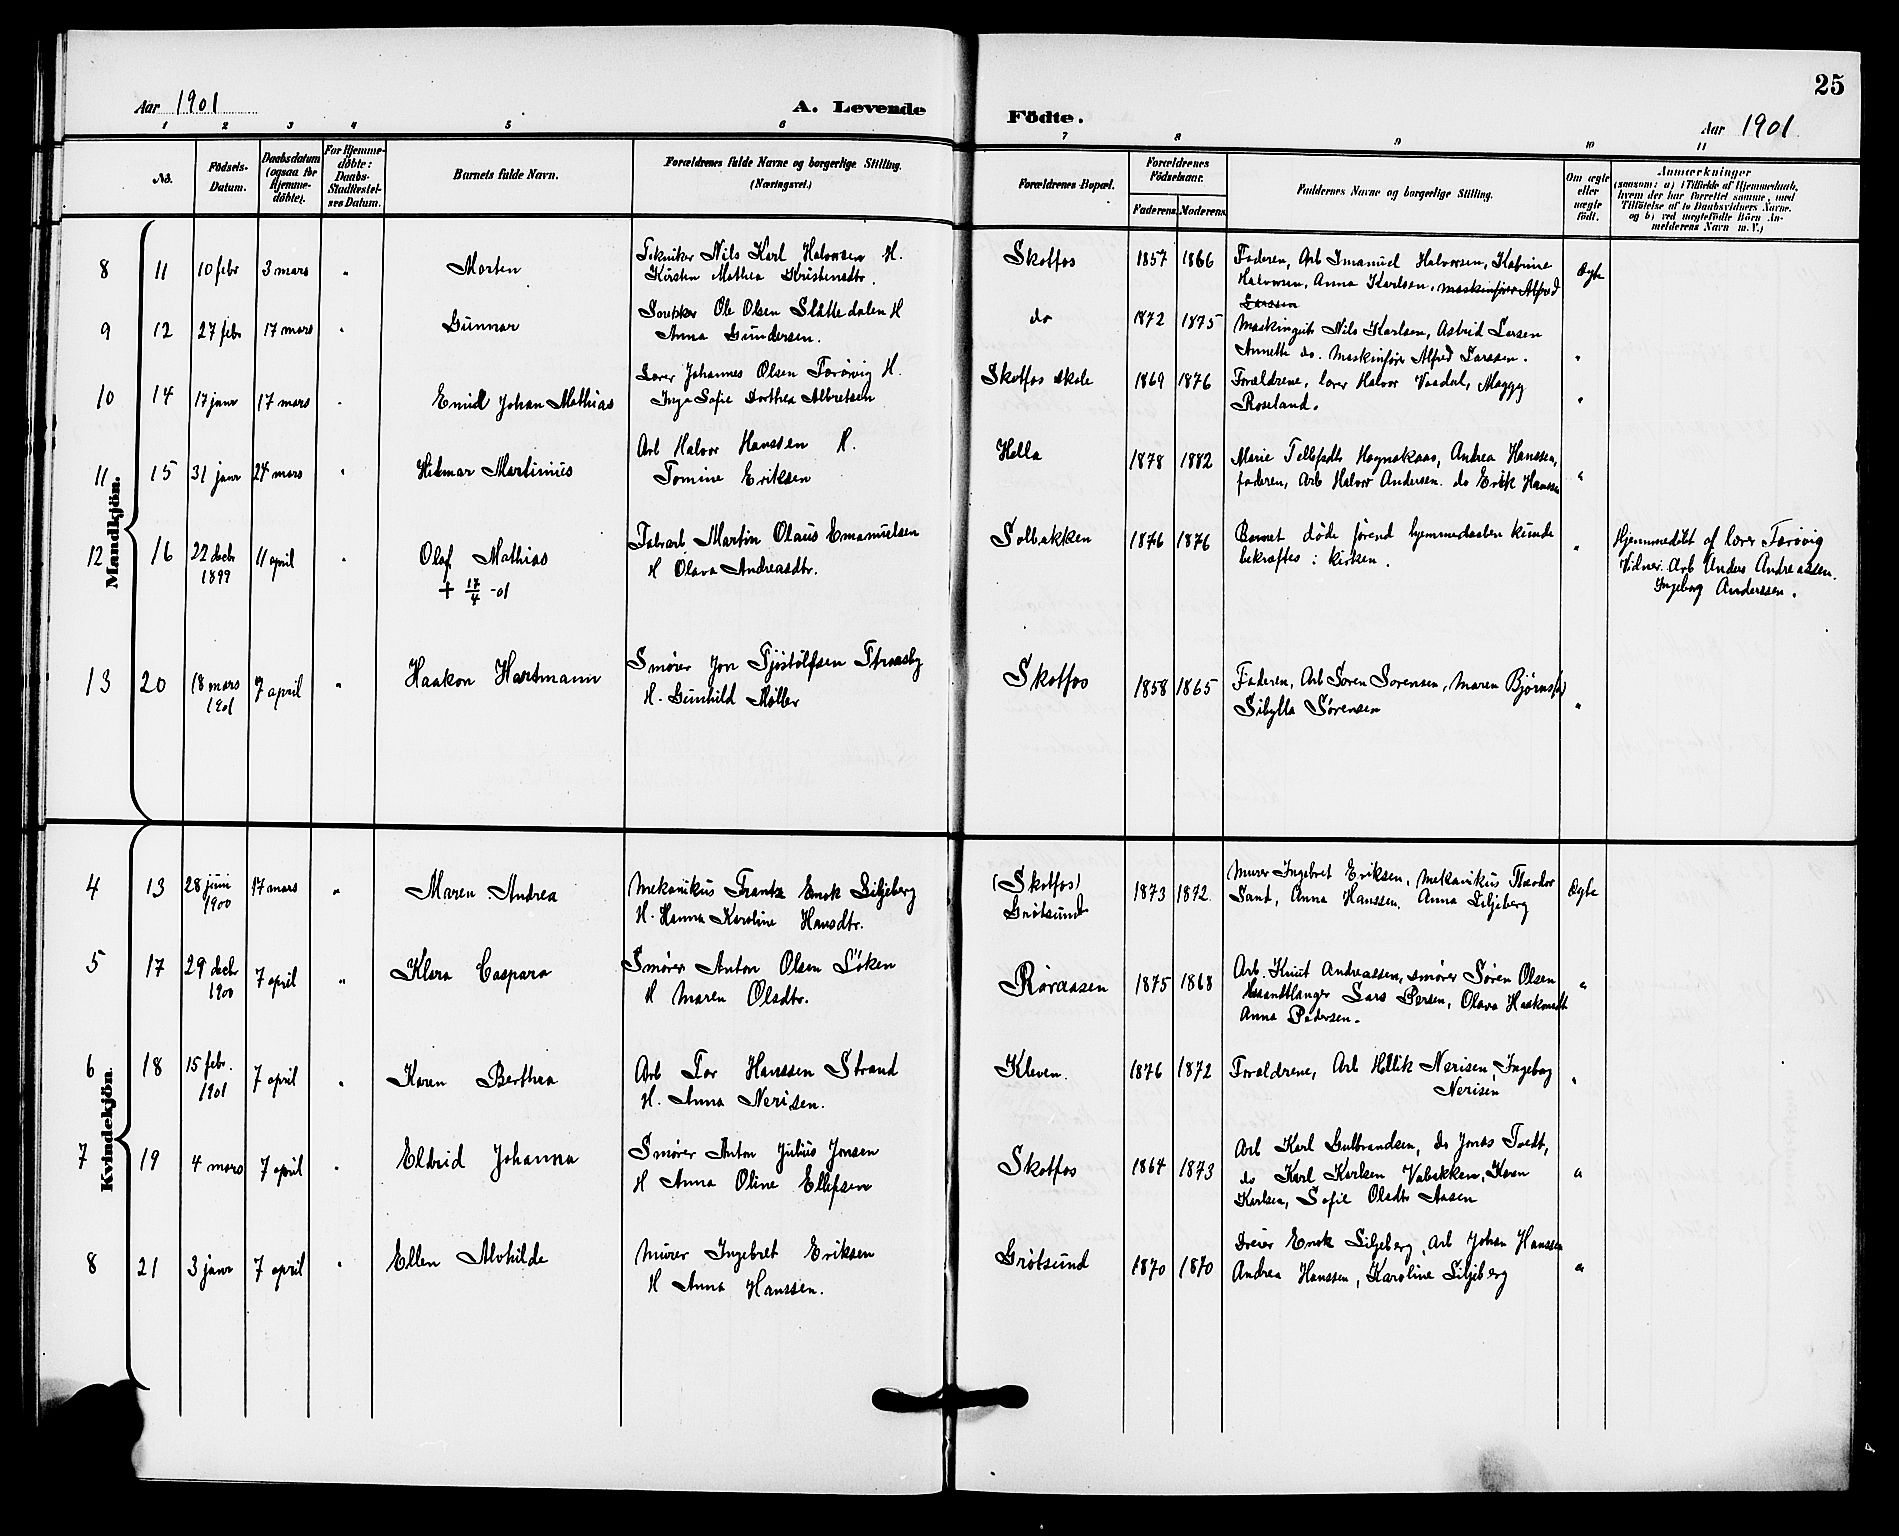 Aar 1901
A. Levende
Födte.
25
Aar 1901.
1 2 3 4 5 6 7 8 9 10 11
No. Födsels-Datum. Daabsdatum (ogsaa for Hjemme-döbte). For Hjemme-döbte: Daabs-Stadfæstel-ses Datum. Barnets fulde Navn. Forældrenes fulde Navne og borgerlige Stilling. (Næringsvei.) Forældrenes Bopæl. Forældrenes Födselsaar. Faderens Moderens Faddernes Navne og borgerlige Stilling. Om ægte eller uægte födt. Anmærkninger
(saasom: a) i Tilfælde af Hjemmedaab,
hvem der har forrettet samme, med
Tilföielse af to Daabsvidners Navne,
og b) ved uægtefödte Börn An-
melderens Navn m. V.)
Mandkjön.
8 11 10 febr 3 mars " Morten Tekniker Nils Karl Halvorsen H. Skotfos 1857 1866 Faderen, Arb Imanuel Halvorsen, Katrine Ægte
Kirsten Mathea Kristensdtr. Halvorsen, Anna Karlsen, maskinfører Alfred
Larssen
9 12 27 febr 17 mars " Gunnar Ole Olsen Slåttedalen H do 1872 1875 Nils Karlsen, Astrid Larsen
Anna Gundersen. Annette do. Maskinfører Alfred Larssen. "
10 14 17 janr 17 mars " Emil Johan Mathias Lærer Johannes Olsen Førøvig H. Skotfos skole 1869 1876 Forældrene, lærer Halvor Vaadal, Maggy "
Inga Sofie Dorthea Albretsen Roseland.
11 15 31 janr 24 mars " Hilmar Martinius Arb Halvor Hanssen H. Holla 1878 1882 Marie Tellefsdtr Høgnakaas, Andrea Hanssen, "
Tomine Eriksen faderen, Arb Halvor Andersen. do Erik Hanssen
12 16 22 decbr 11 april " Olaf Mathias Fabrarb Martin Olaus Emanuelsen Solbakken 1876 1876 Barnet døde førend hjemmedaaben kunde " Hjemmedøbt af lærer Førøvig
1899 + 17/4 -01 H Olava Andreasdtr. bekræftes i kirken. Vidner: Arb Anders Andreassen.
Ingeborg Anderssen.
13 20 18 mars 7 april " Haakon Hartmann Smører Jon Tjøstolfsen Straasby Skotfos 1858 1865 Faderen, Arb Søren Sørensen, Maren "
1901 H. Gunhild Møller Sibylla Sørensen
Kvindekjön.
4 13 28 juni 17 mars " Maren Andrea Mekanikus Frantz Enok Siljeberg (Skotfos) 1873 1872. Murer Ingebret Eriksen, mekanikus Theodor Ægte
1900 H. Hanna Karoline Hansdtr. Grøtsund Sand, Anna Hanssen. Anna Siljeberg
5 17 29 decbr 7 april " Klara Caspara Smører Anton Olsen Løken Røraasen 1875 1868 Arb. Knut Andreassen, smører Søren Olsen "
1900 H Maren Olsdtr. Haandtlanger Lars Persen, Olava Haakonsdtr
Anna Pedersen.
6 18 15 febr. 7 april " Karen Berthea Arb Tor Hanssen Strand Kleven. 1876 1872 Forældrene, Arb Hellik Nerisen, Ingebog "
1901 H. Anna Nerisen. Nerisen
7 19 4 mars 7 april " Eldrid Johanna Smører Anton Julius Jonsen Skotfos 1864 1873 Arb Karl Gulbrandsen, do Jonas Tvedt, "
H Anna Oline Ellefsen do Karl Karlsen Vabakken, Karen
Karlsen, Sofie Olsdtr Aasen
8 21 3 janr 7 april " Ellen Alvhilde Murer Ingebret Eriksen Grøtsund 1870 1870 Dreier Enok Siljeberg, Arb Johan Hanssen "
H Anna Hanssen. Andrea Hanssen, Karoline Siljeberg